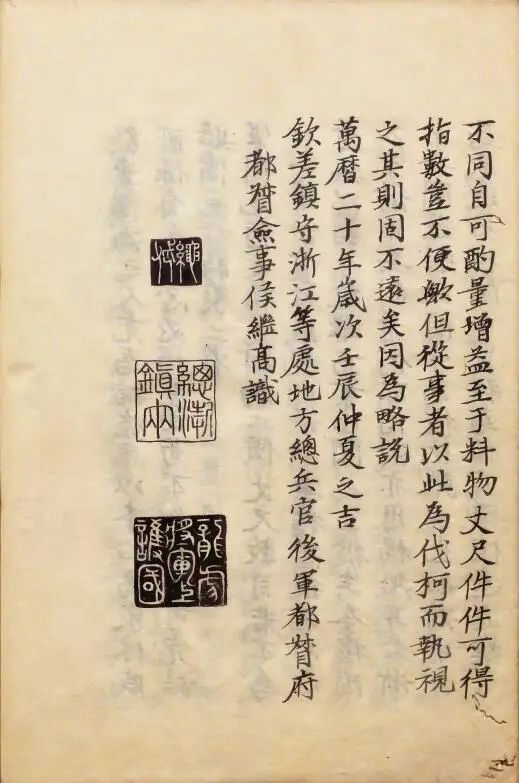 不同自可酌量增益至于料物丈尺件件可得
指數豈不便歟但從事者以此為伐柯而執視
之其則固不遠矣因為略說
萬曆二十年歲次壬辰仲夏之吉
欽差鎮守浙江等處地方總兵官後軍都督府
都督僉事侯繼高識
總浙
鎮兩
龍虎
將軍上
護國